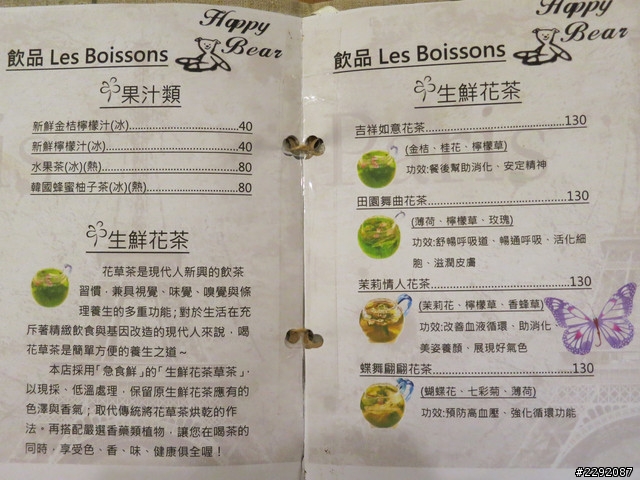 Happy Bear
飲品 Les Boissons
果汁類
新鮮金桔檸檬汁(冰)..............................40
新鮮檸檬汁(冰)....................................40
水果茶(冰)(熱)....................................80
韓國蜂蜜柚子茶(冰)(熱)..........................80
生鮮花茶
花草茶是現代人新興的飲茶
習慣，兼具視覺、味覺、嗅覺與條
理養生的多重功能；對於生活在充
斥著精緻飲食與基因改造的現代人來說，喝
花草茶是簡單方便的養生之道～
本店採用「急食鮮」的「生鮮花茶草茶」，
以現採、低溫處理，保留原生鮮花茶應有的
色澤與香氣；取代傳統將花草茶烘乾的作
法。再搭配嚴選香藥類植物，讓您在喝茶的
同時，享受色、香、味、健康俱全喔！
Happy Bear
飲品 Les Boissons
生鮮花茶
吉祥如意花茶....................................130
(金桔、桂花、檸檬草)
功效:餐後幫助消化、安定精神
田園舞曲花茶....................................130
(薄荷、檸檬草、玫瑰)
功效:舒暢呼吸道、暢通呼吸、活化細
胞、滋潤皮膚
茉莉情人花茶....................................130
(茉莉花、檸檬草、香蜂草)
功效:改善血液循環、助消化、
美姿養顏，展現好氣色
蝶舞翩翩花茶....................................130
(蝴蝶花、七彩菊、薄荷)
功效:預防高血壓、強化循環功能
#2292087